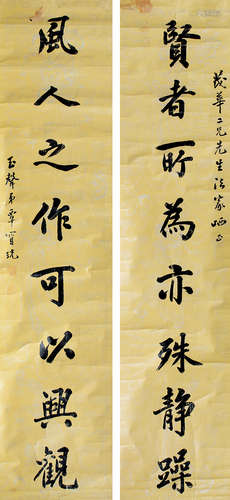 茂華二兄先生法家哂正
賢者所為亦殊静躁
風人之作可以興觀
玉聲弟覃寳琉